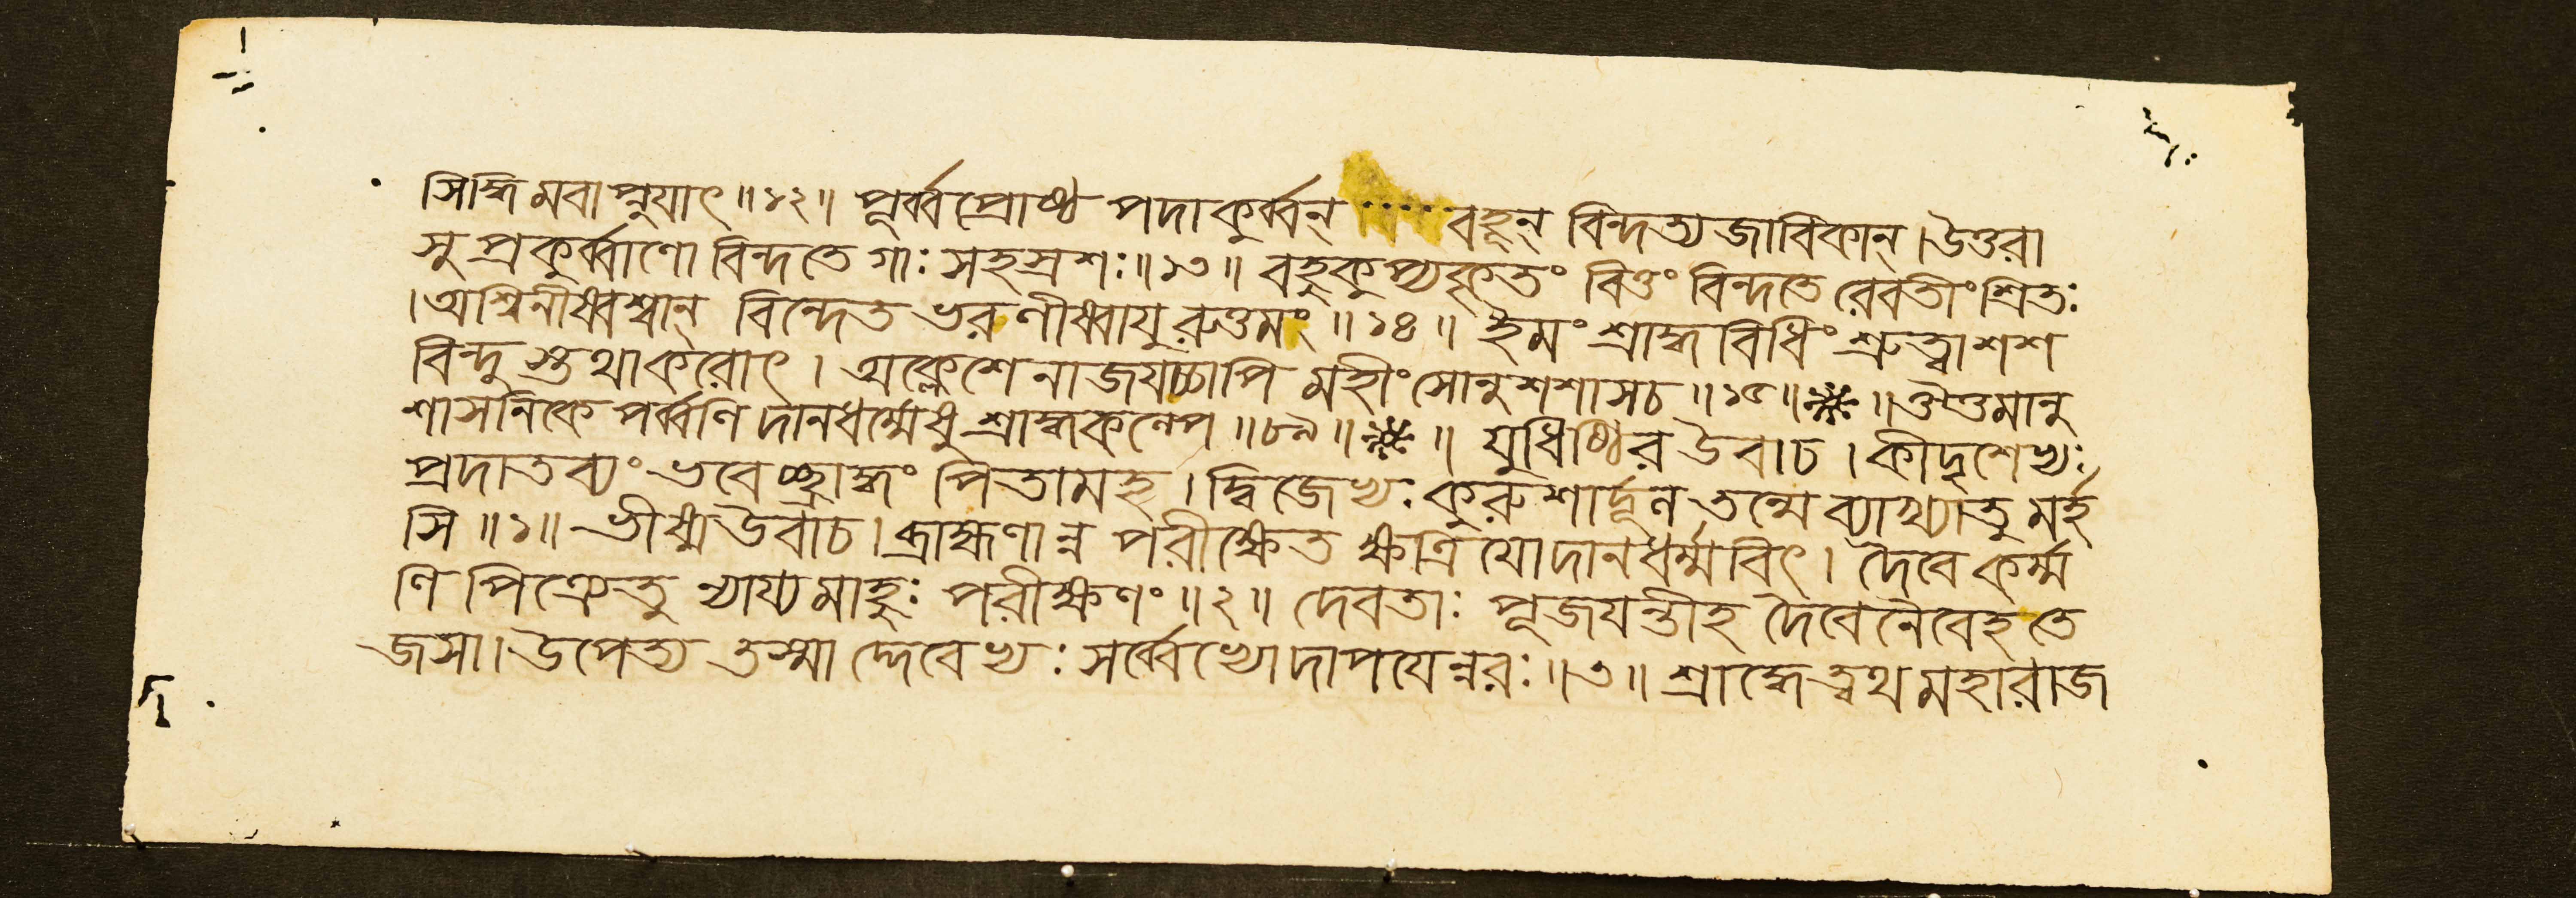 সিদ্ধিমবাপ্নুয়াৎ॥১২॥ পূর্ব্বপ্রোষ্ঠপদাকুর্ব্বন্ বহূন্ বিন্দত্যজাবিকান্।উত্তরা
সু প্রকুর্ব্বাণো বিন্দতে গাঃ সহস্রশঃ॥১৩॥ বহুকুপ্যকৃতং বিত্তং বিন্দতে রেবতীংশ্রিতঃ
।অশ্বিনীষ্বশ্বান্ বিন্দেত ভরণীষ্বাযুরুত্তমং॥১৪॥ ইমং শ্রাদ্ধবিধিং শ্রুত্বাশশ
বিন্দুস্তথাকরোৎ। অক্লেশেনাজযচ্চাপি মহীং সোনুশশাসচ॥১৫॥ ॥ঔত্তমানু
শাসনিকে পর্ব্বণি দানধর্ম্মেষু শ্রাদ্ধকল্পে॥৮৯॥ ॥ যুধিষ্ঠির উবাচ।কীদৃশেভ্যঃ
প্রদাতব্যং ভবেচ্ছ্রাদ্ধং পিতামহ।দ্বিজেভ্যঃ কুরুশার্দ্দূল তন্মে ব্যাখ্যাতুমর্হ
সি॥১॥ ভীষ্ম উবাচ।ব্রাহ্মণান্ন পরীক্ষেত ক্ষত্রিযোদানধর্ম্মবিৎ। দৈবে কর্ম্ম
ণি পিত্রেতু ন্যায্যমাহুঃ পরীক্ষণং॥২॥ দেবতাঃ পূজযন্তীহ দৈবেনৈবেহ তে
জসা।উপেত্য তস্মাদ্দেবেভ্যঃ সর্ব্বেভ্যো দাপযেন্নরঃ॥৩॥ শ্রাদ্ধেত্বথ মহারাজ